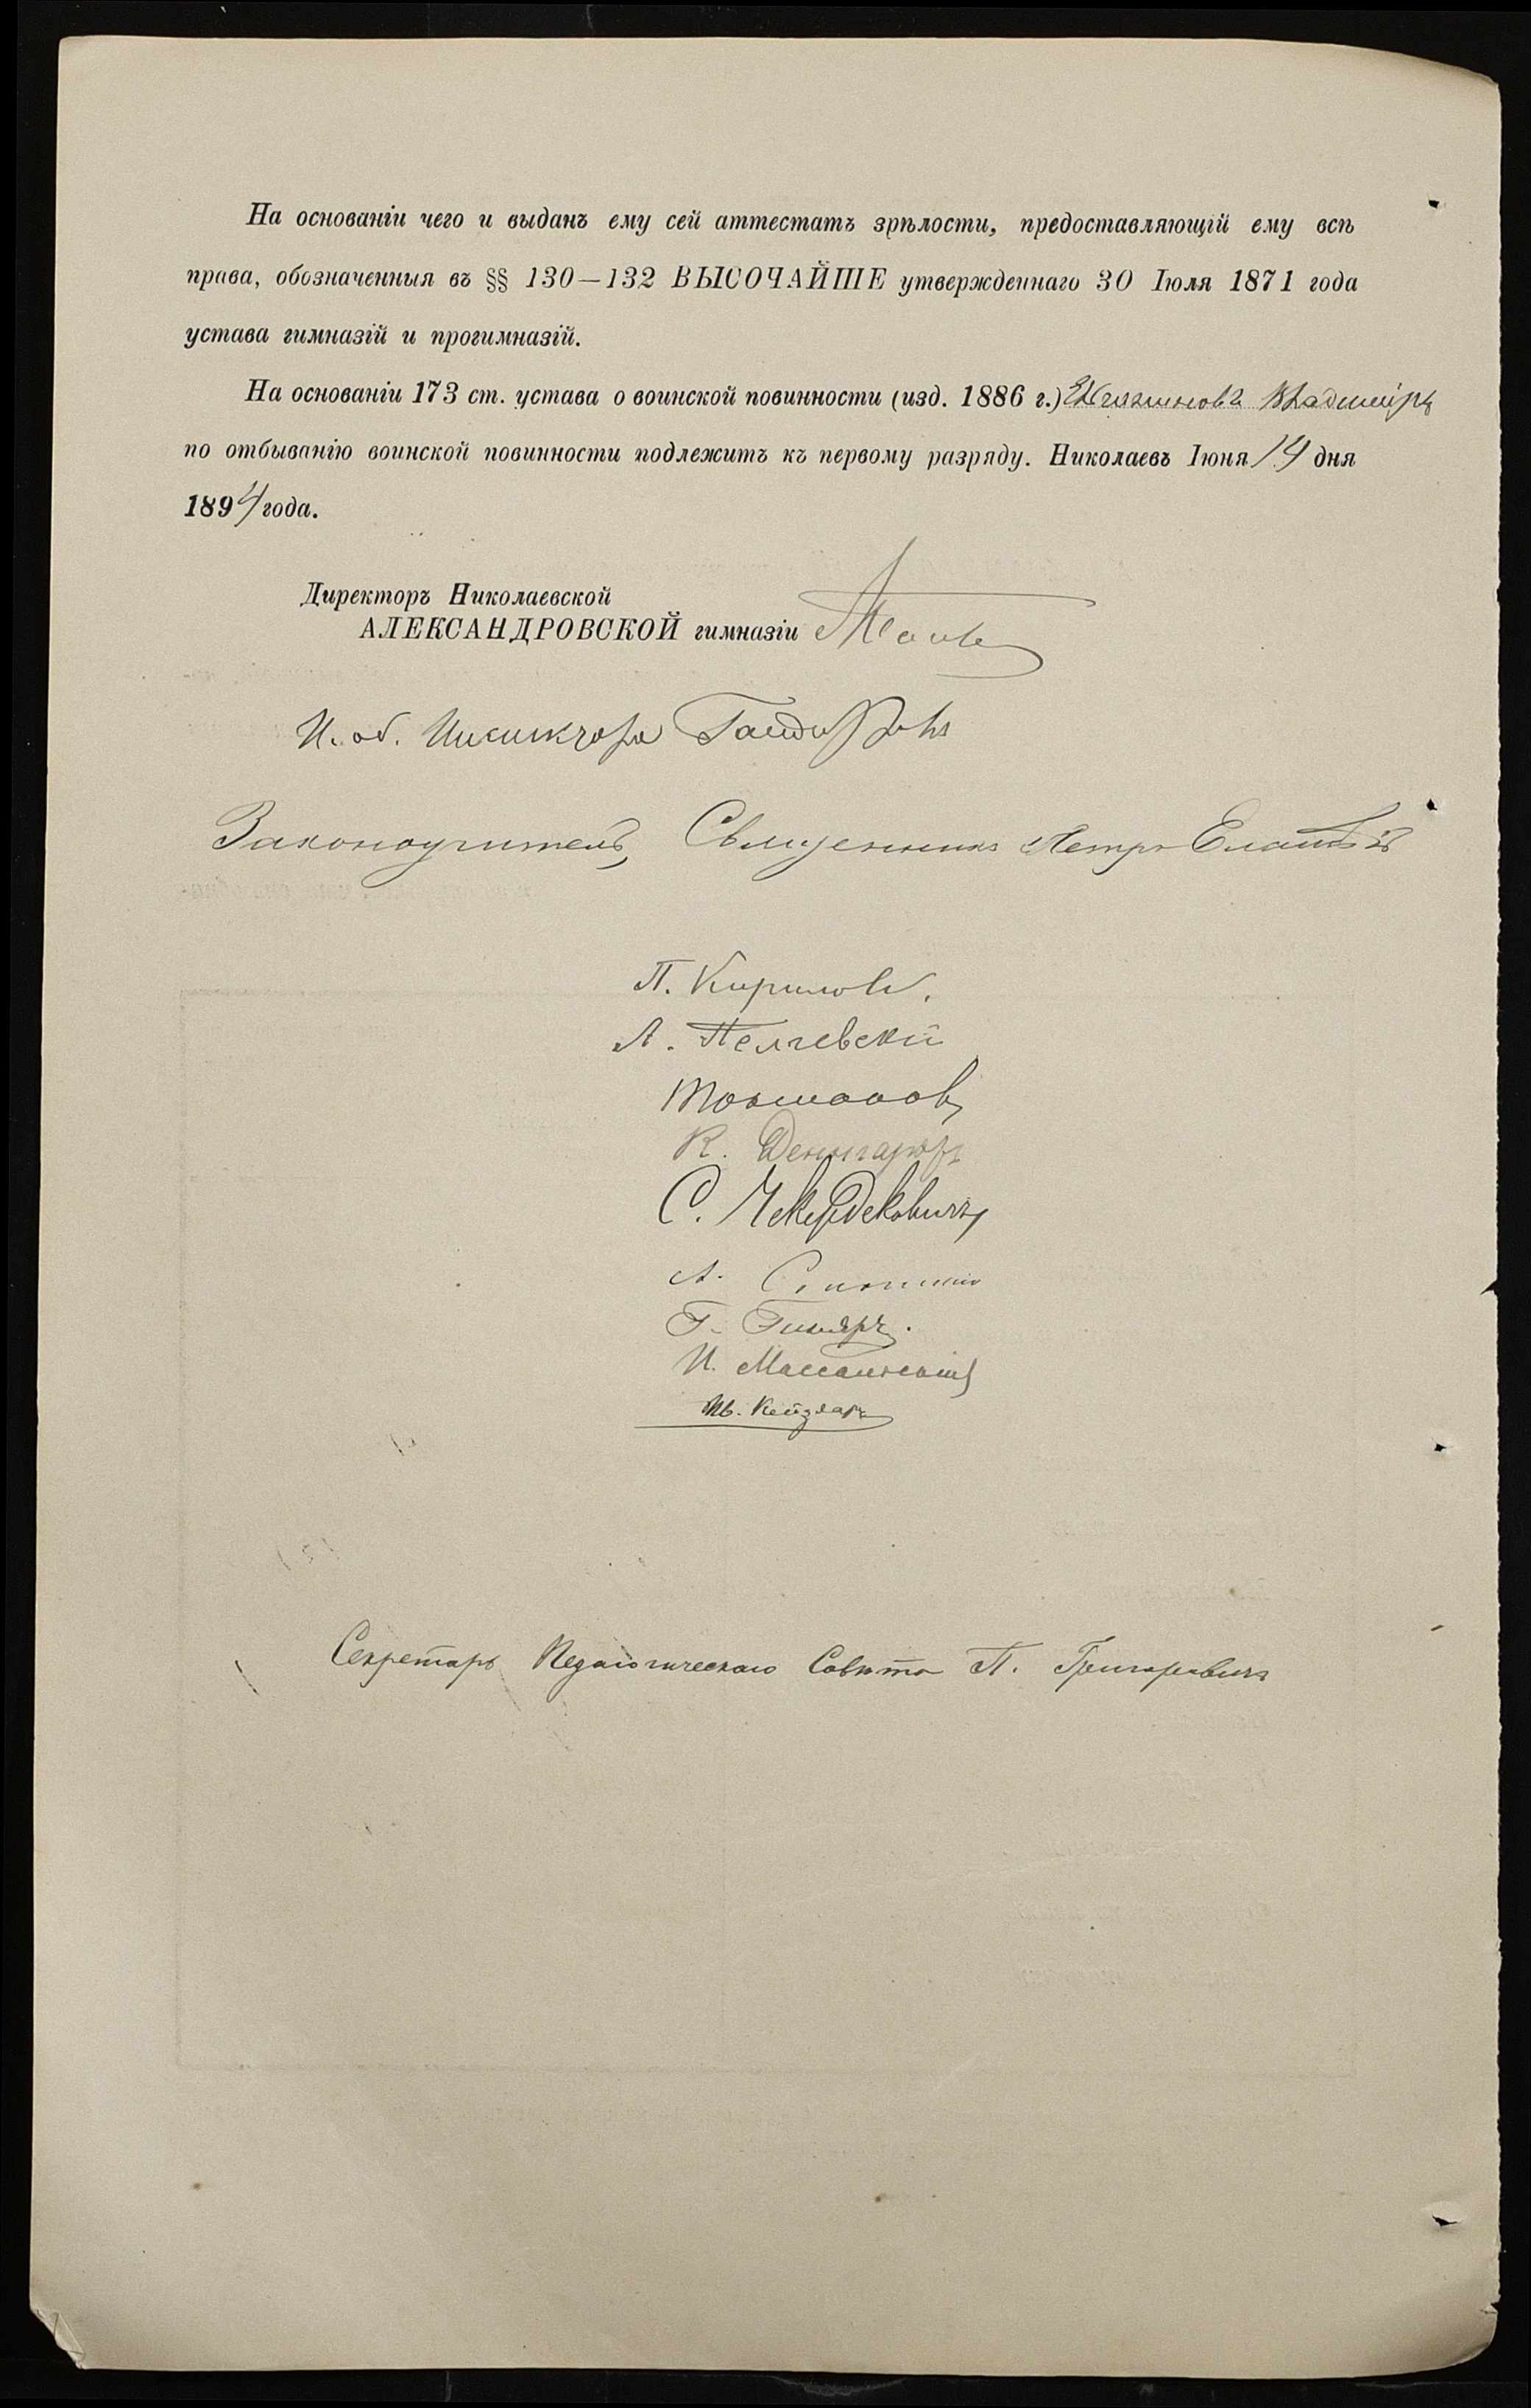 На основаніи чего и выданъ ему сей аттестатъ зрѣлости, предоставляющій ему всѣ
права, обозначенныя въ §§ 130—132 ВЫСОЧАЙШЕ утвержденнаго 30 Іюля 1871 года
устава гимназій и прогимназій.
На основаніи 173 ст. устава о воинской повинности (изд. 1886 г.) Владиміръ
по отбыванію воинской повинности подлежитъ къ первому разряду. Николаевъ Іюня 14 дня
1894 года.
Директоръ Николаевской
АЛЕКСАНДРОВСКОЙ гимназіи
И. об. Инспектора
Законоучитель, Священникъ Петръ
П. Кириловъ.
А.
К.
С.
А.
Г.
И.
Ив. Кейзларъ
Секретарь Педагогическаго Совѣта П. Григоровичъ